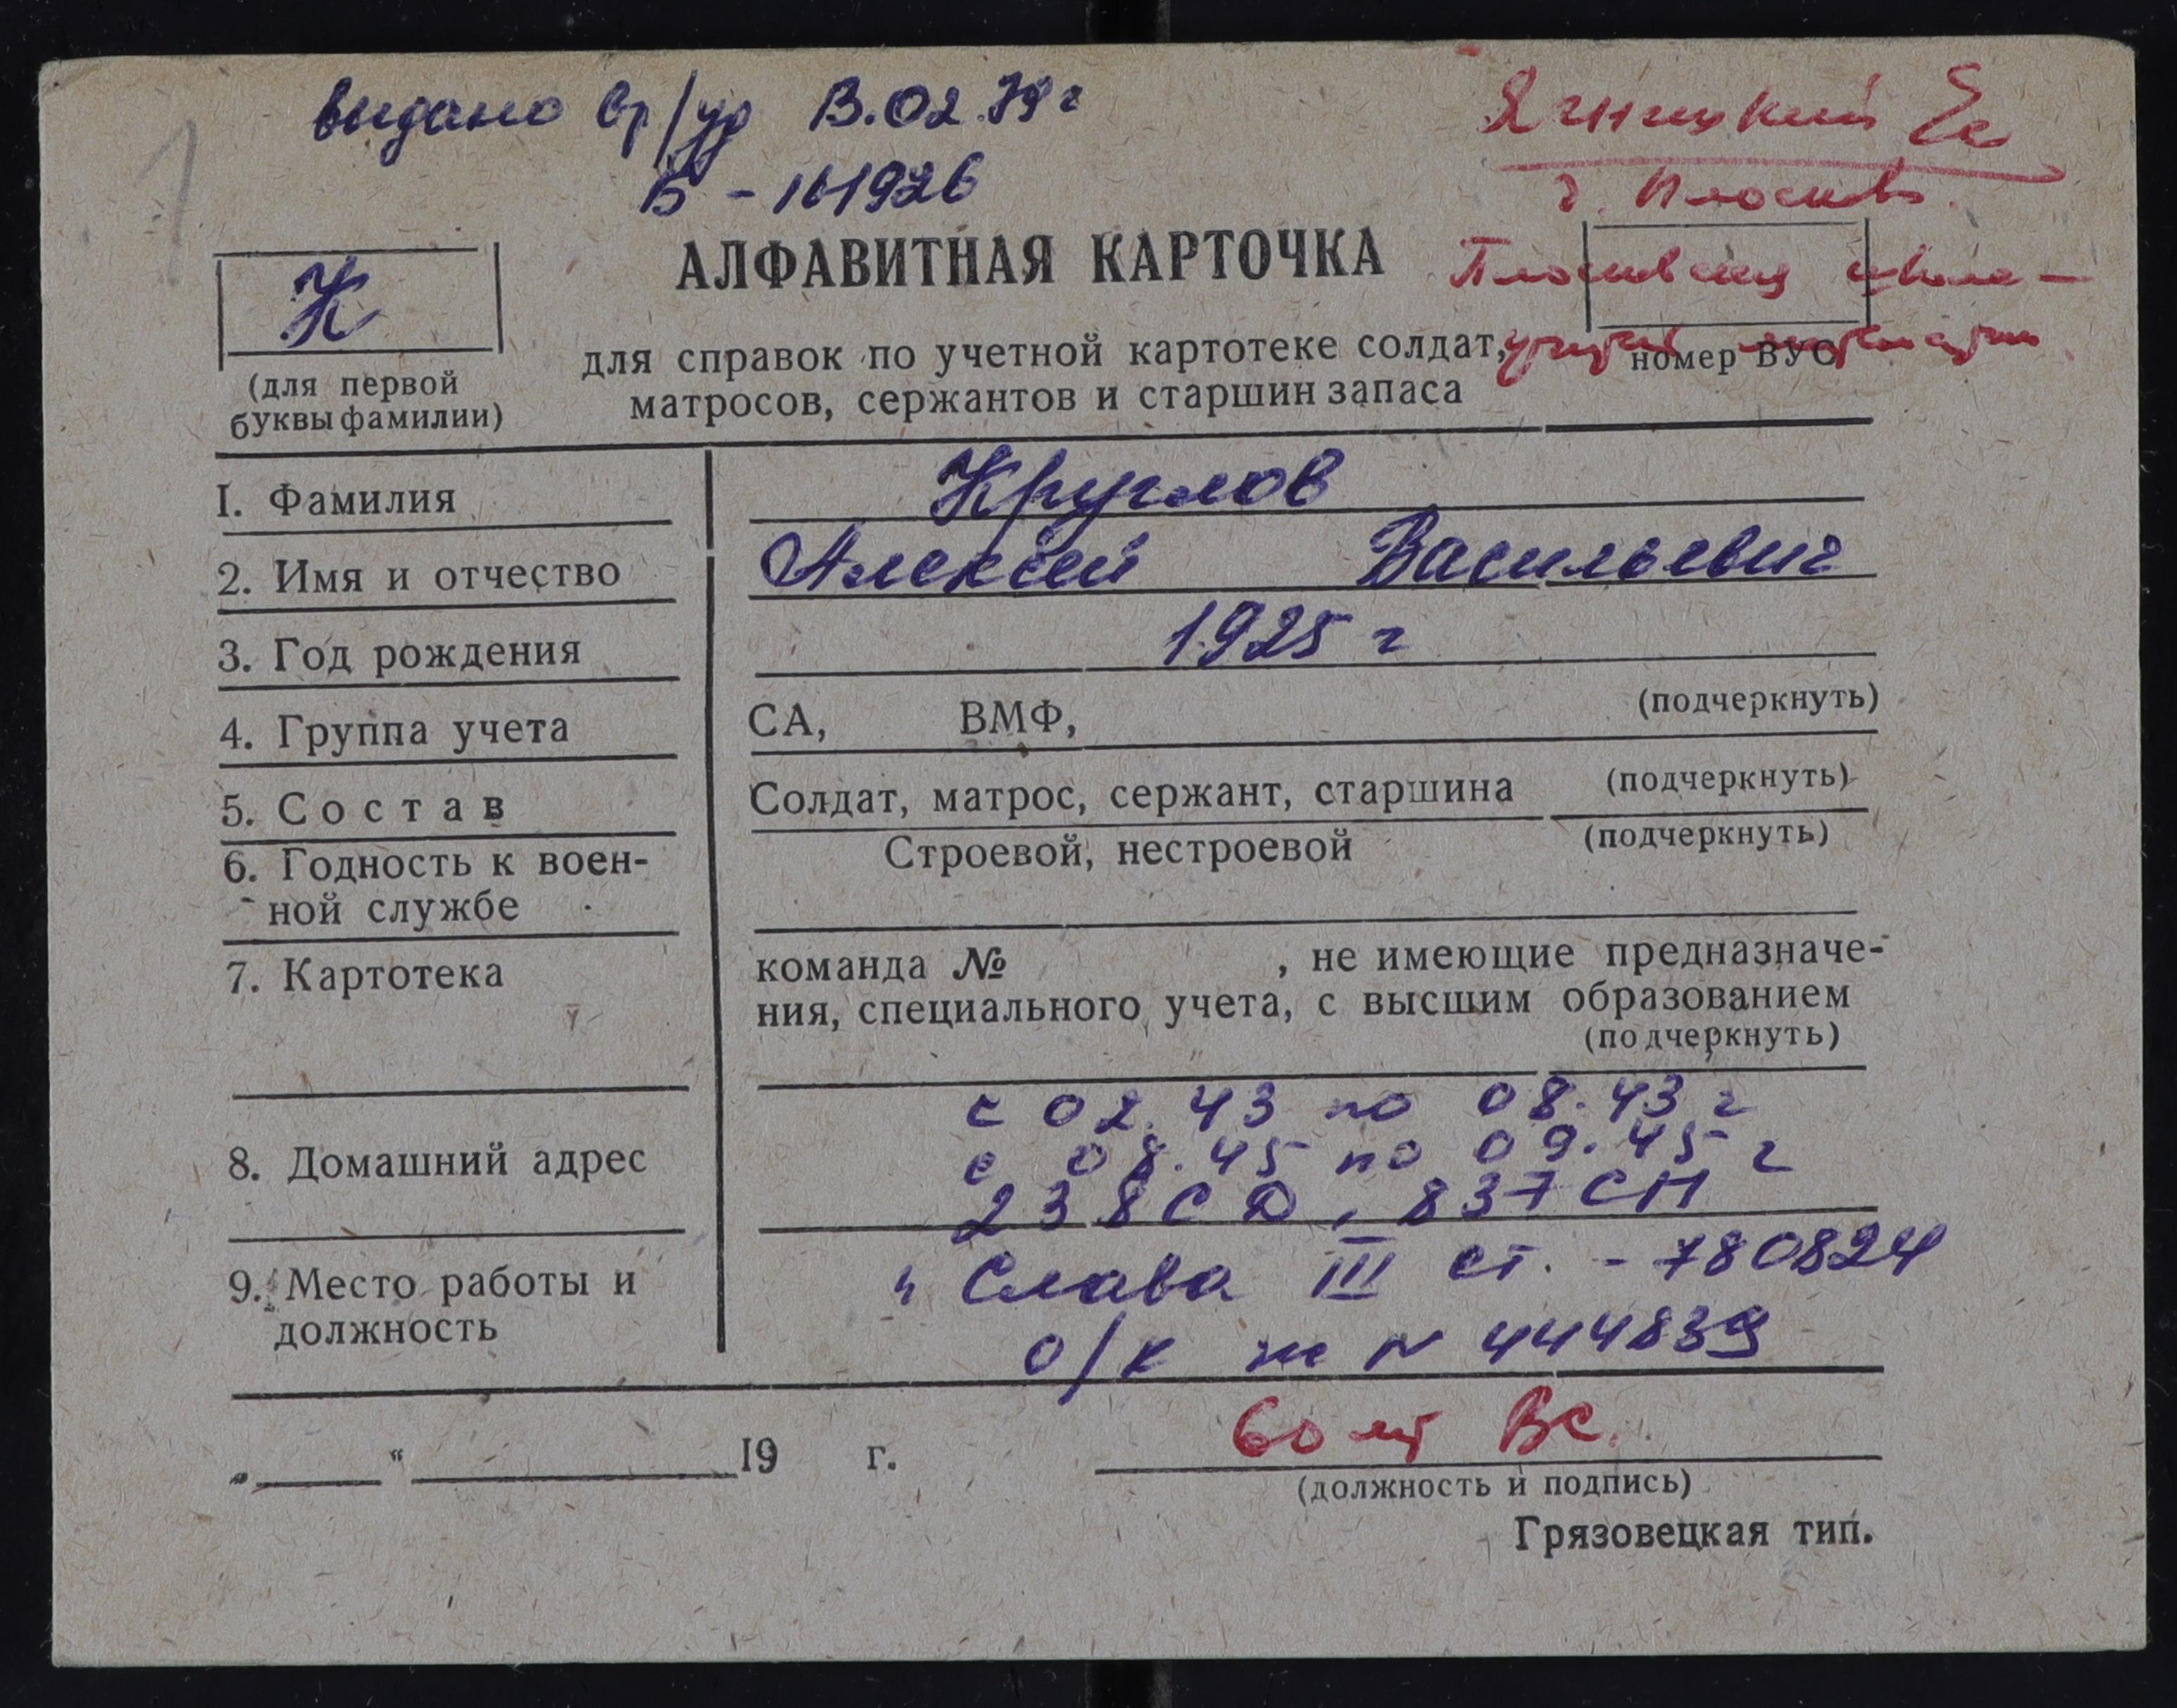 выдано вр/уд 13.02.79 г
Б - 161926
1
К
АЛФАВИТНАЯ КАРТОЧКА
для справок по учетной картотеке солдат,
матросов, сержантов и старшин запаса
(для первой
буквы фамилии)
номер ВУС
1. Фамилия Круглов
2. Имя и отчество Алексей Васильевич
3. Год рождения 1925 г
4. Группа учета СА, ВМФ, (подчеркнуть)
5. Состав Солдат, матрос, сержант, старшина (подчеркнуть)
6. Годность к воен-
ной службе
Строевой, нестроевой (подчеркнуть)
7. Картотека
команда № , не имеющие предназначе-
ния, специального учета, с высшим образованием
(подчеркнуть)
с 02.43 по 08.43 г
8. Домашний адрес с 08.45 по 09.45 г
238 СД, 837 СП
9. Место работы и
должность
"Слава III ст. - 780824
о/к № 444839
60 лет Вс.
„ “ 19 г.
(должность и подпись)
Грязовецкая тип.